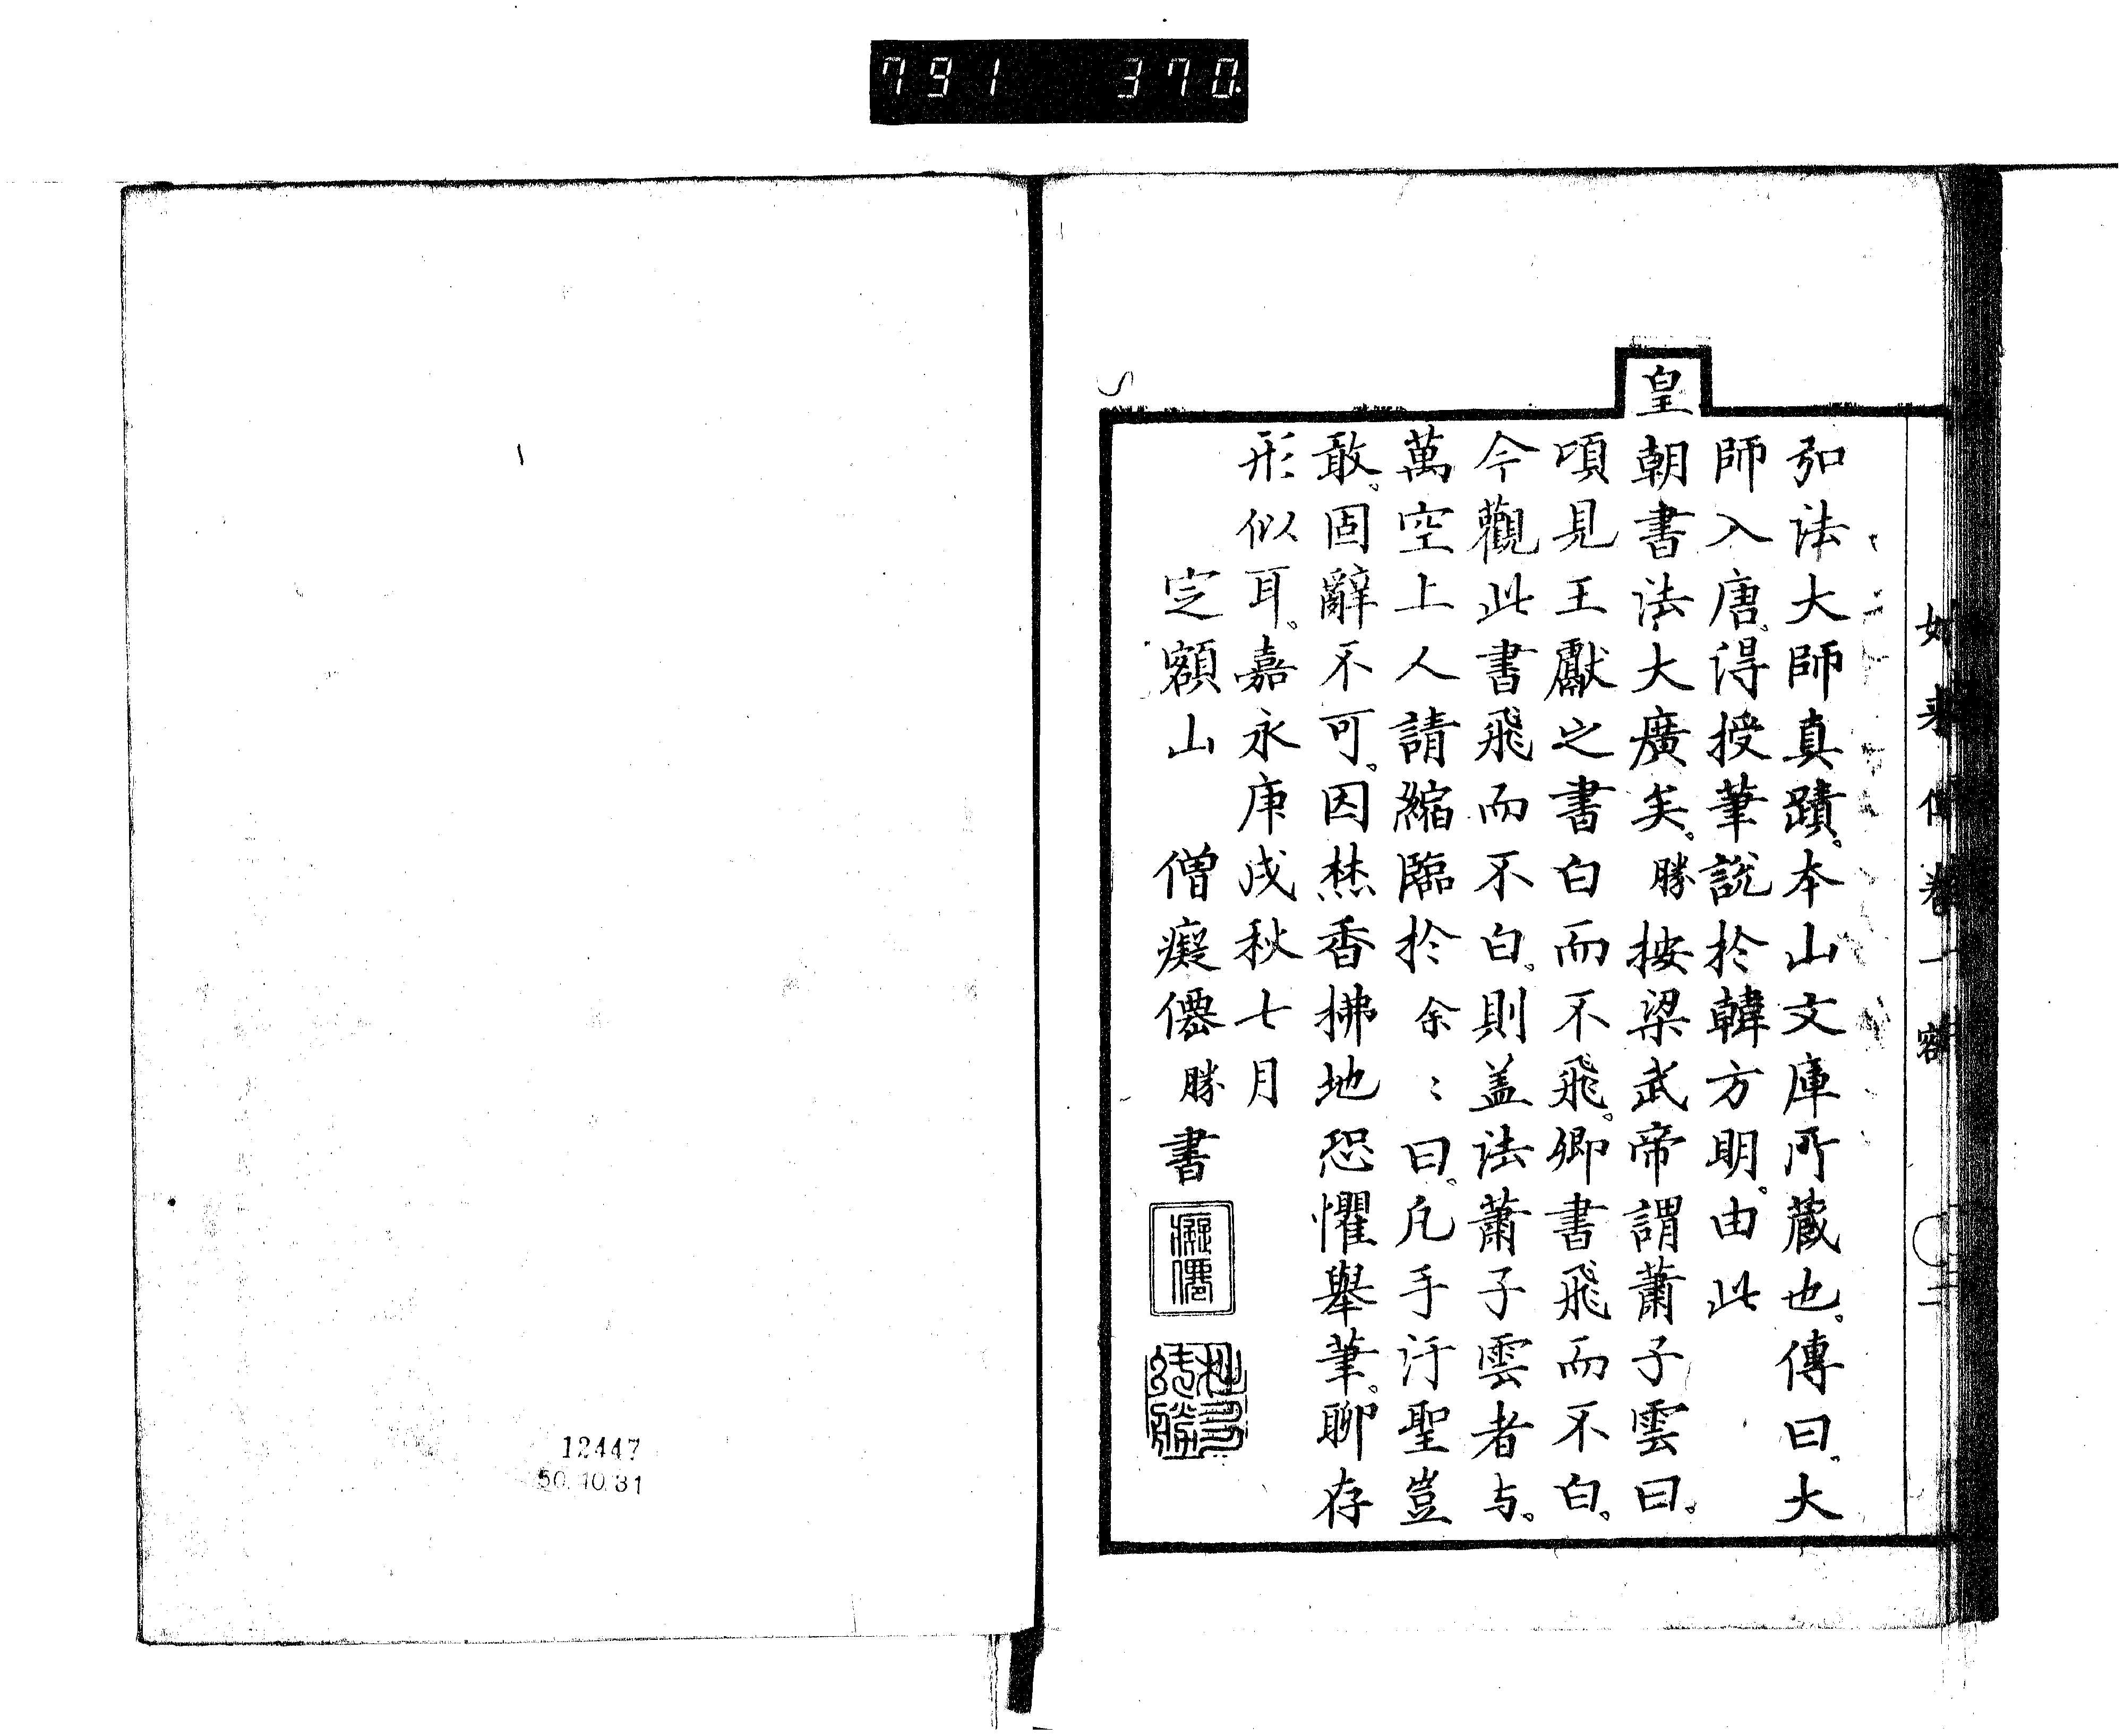 791 370
弘法大師真蹟。本山文庫所蔵也。傳曰。大
師入唐。得授筆説於韓方明。由此
皇朝書法大廣矣。勝按梁武帝謂蕭子雲曰。
頃見王獻之書白而不飛。卿書飛而不白。
今觀此書飛而不白。則盖法蕭子雲者与。
萬空上人請縮臨於余〻曰。凡手汙聖豈
敢。固辭不可。因焚香拂地恐懼舉筆。聊存
形似耳。嘉永庚戌秋七月
定額山 僧癡僊勝書
癡僊
12447
50.10.31